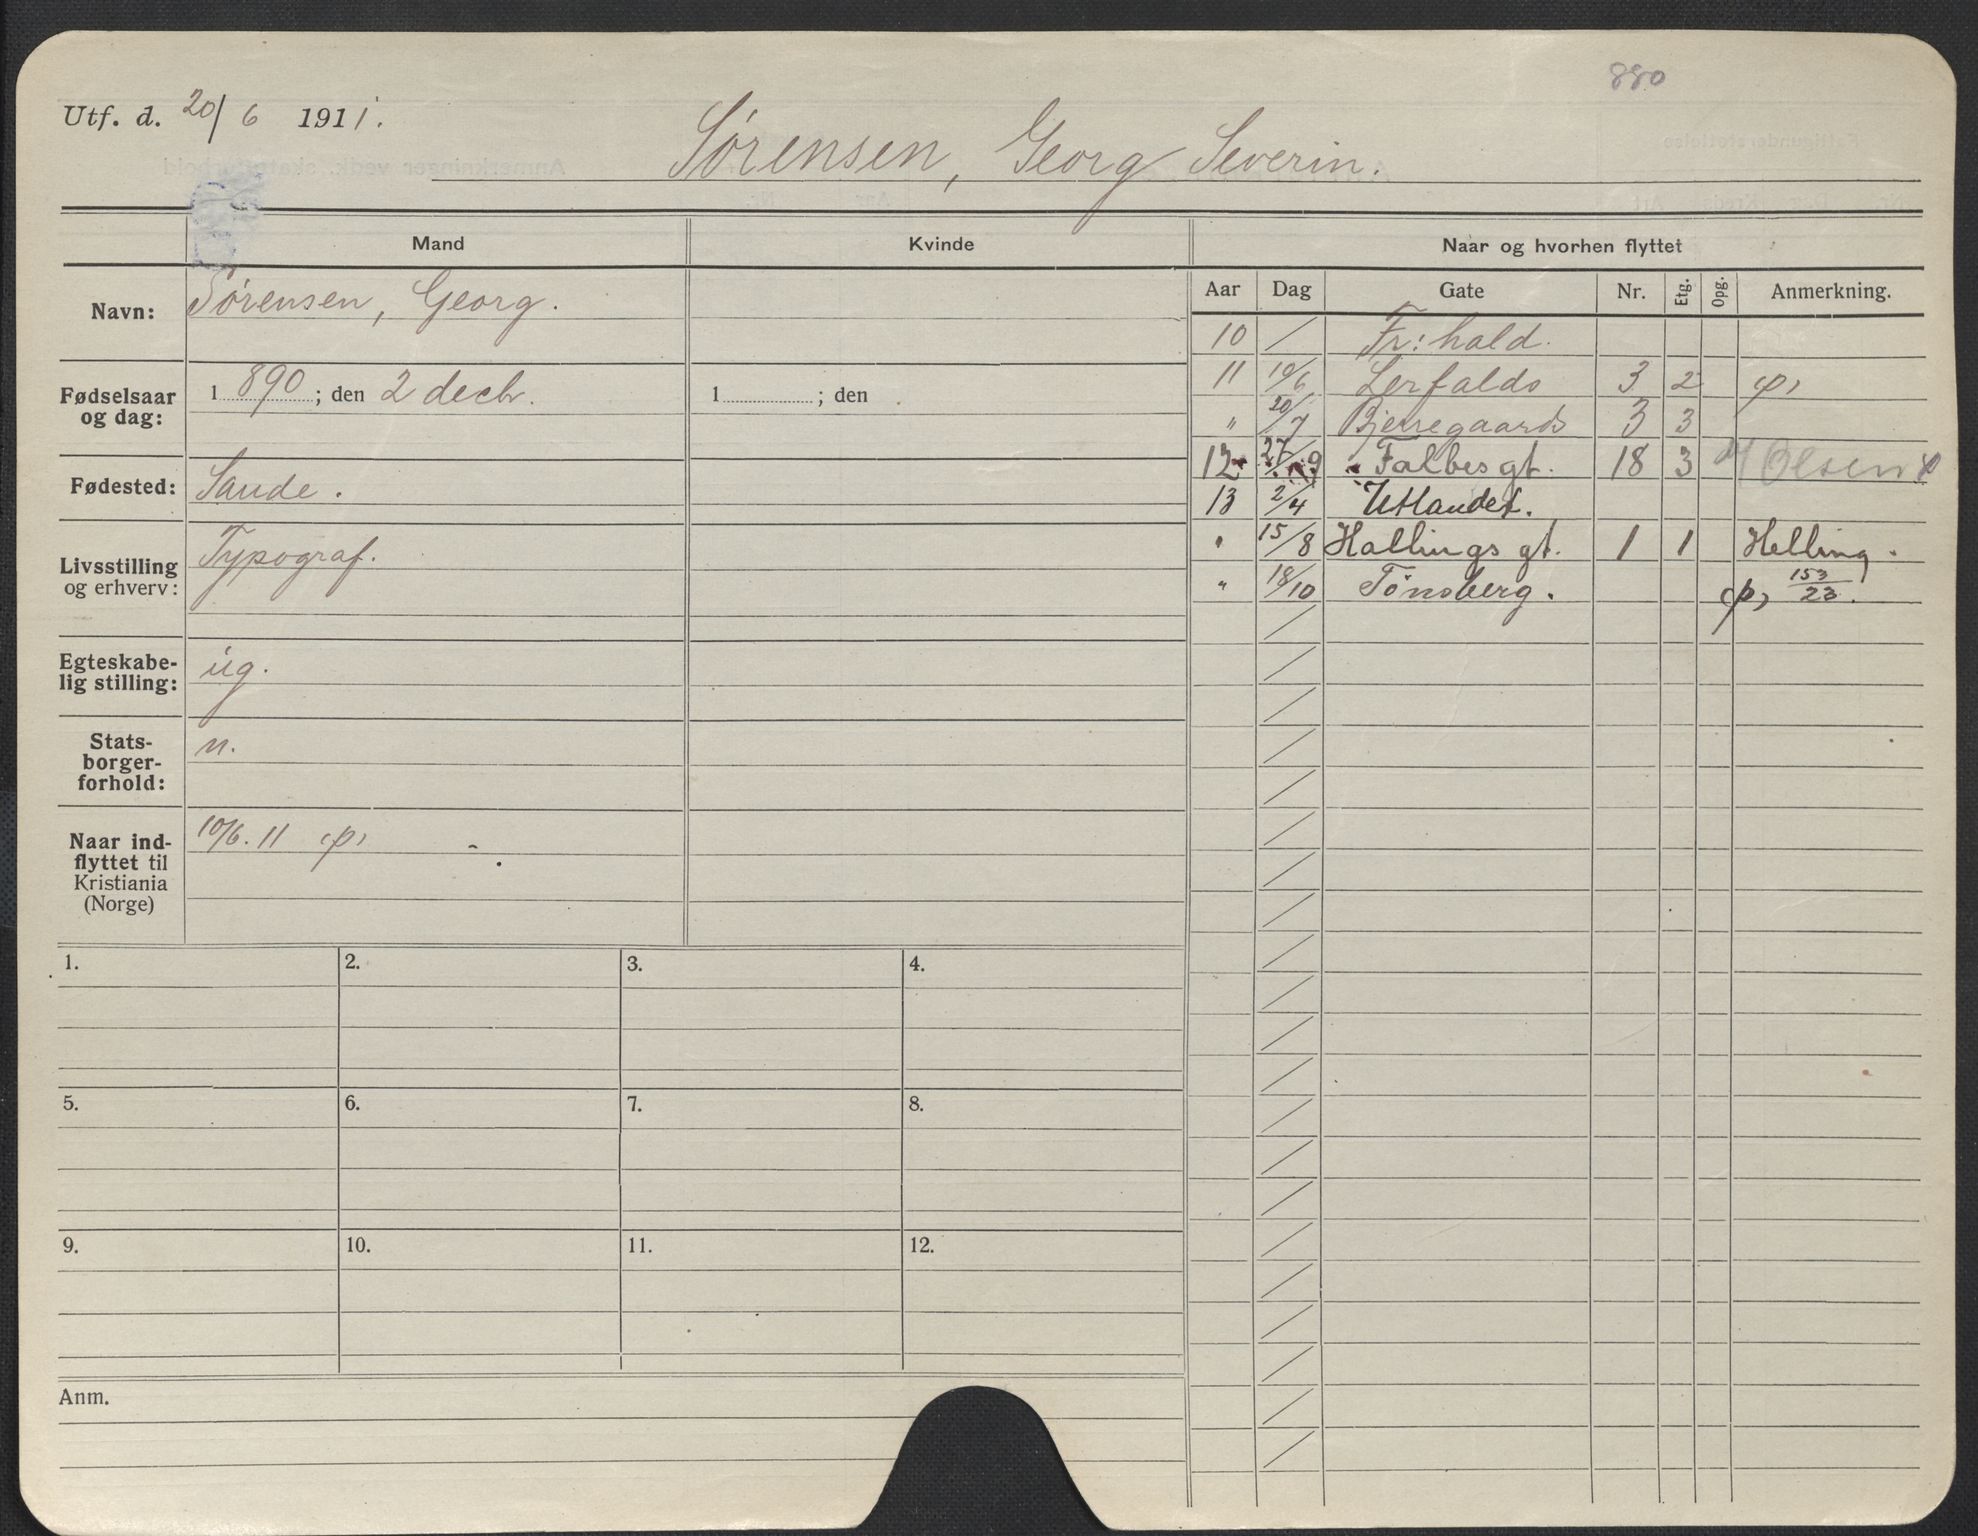 880
Utf. d. 20/6 1911.
Sørensen, Georg Severin.
Mand
Kvinde
Naar og hvorhen flyttet
Navn: Sørensen, Georg.
Fødselsaar og dag: 1890; den 2 decbr. 1 ; den
Fødested: Sande.
Livsstilling og erhverv: Typograf.
Egteskabelig stilling: ug.
Statsborgerforhold: n.
Naar indflyttet til Kristiania (Norge) 10/6. 11 (p)
Aar Dag Gate Nr. Etg. Opg. Anmerkning.
10 / Fr:hald.
11 10/6 Lerfalds 3 2 (p)
" 20/7 Bjerregaards 3 3
12 27/9 Falbes gt. 18 3 Olsen
13 2/4 Utlandet.
" 15/8 Hallings gt. 1 1 Helling.
" 18/10 Tönsberg. (p) 153/23.
1. 2. 3. 4.
5. 6. 7. 8.
9. 10. 11. 12.
Anm.